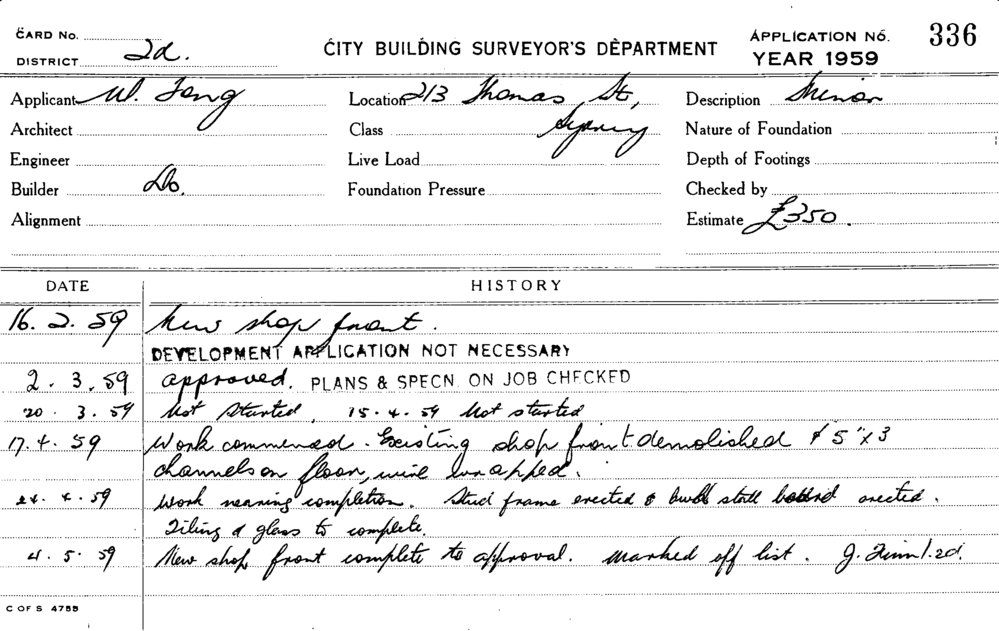 CARD No.
DISTRICT 2d.
CITY BUILDING SURVEYOR'S DEPARTMENT
APPLICATION No. 336
YEAR 1959
Applicant W. Fong
Location 213 Thomas St,
Description Minor
Architect
Class Sydney
Nature of Foundation
Engineer
Live Load
Depth of Footings
Builder Do.
Foundation Pressure
Checked by
Alignment
Estimate £350.
DATE HISTORY
16. 2. 59 New shop front.
DEVELOPMENT APPLICATION NOT NECESSARY
2. 3. 59 approved. PLANS & SPECN. ON JOB CHECKED
20. 3. 59 Not Started, 15. 4. 59 Not started
17. 4. 59 Work commenced. Existing shop front demolished & 5"x3
channels on floor, wire wrapped.
24. 4. 59 Work nearing completion. Stud frame erected & erected.
Tiling & glass to complete.
4. 5. 59 New shop front complete to approval. Marked off list. J. 2d.
C OF S 4755